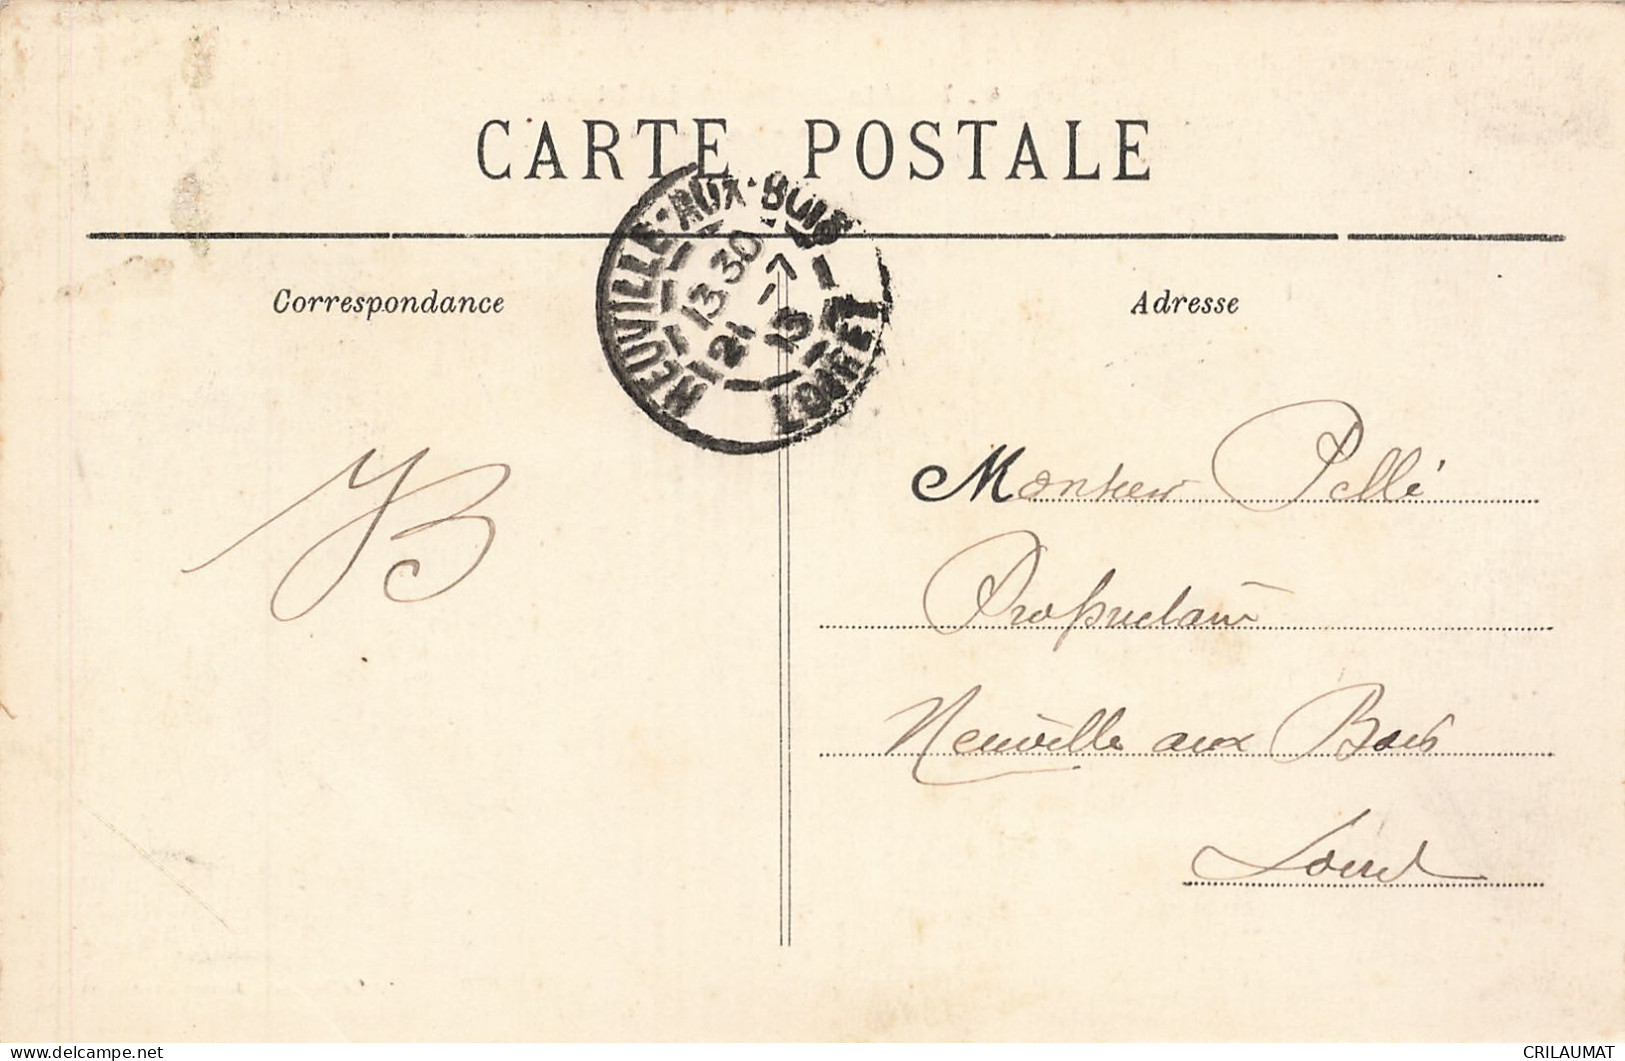 CARTE POSTALE
NEUVILLE-AUX-BOIS
13 30
21 - 7
13
LOIRET
Correspondance
Adresse
Monsieur Pellé
Propriétaire
Neuville aux Bois
Loiret
CRILAUMAT